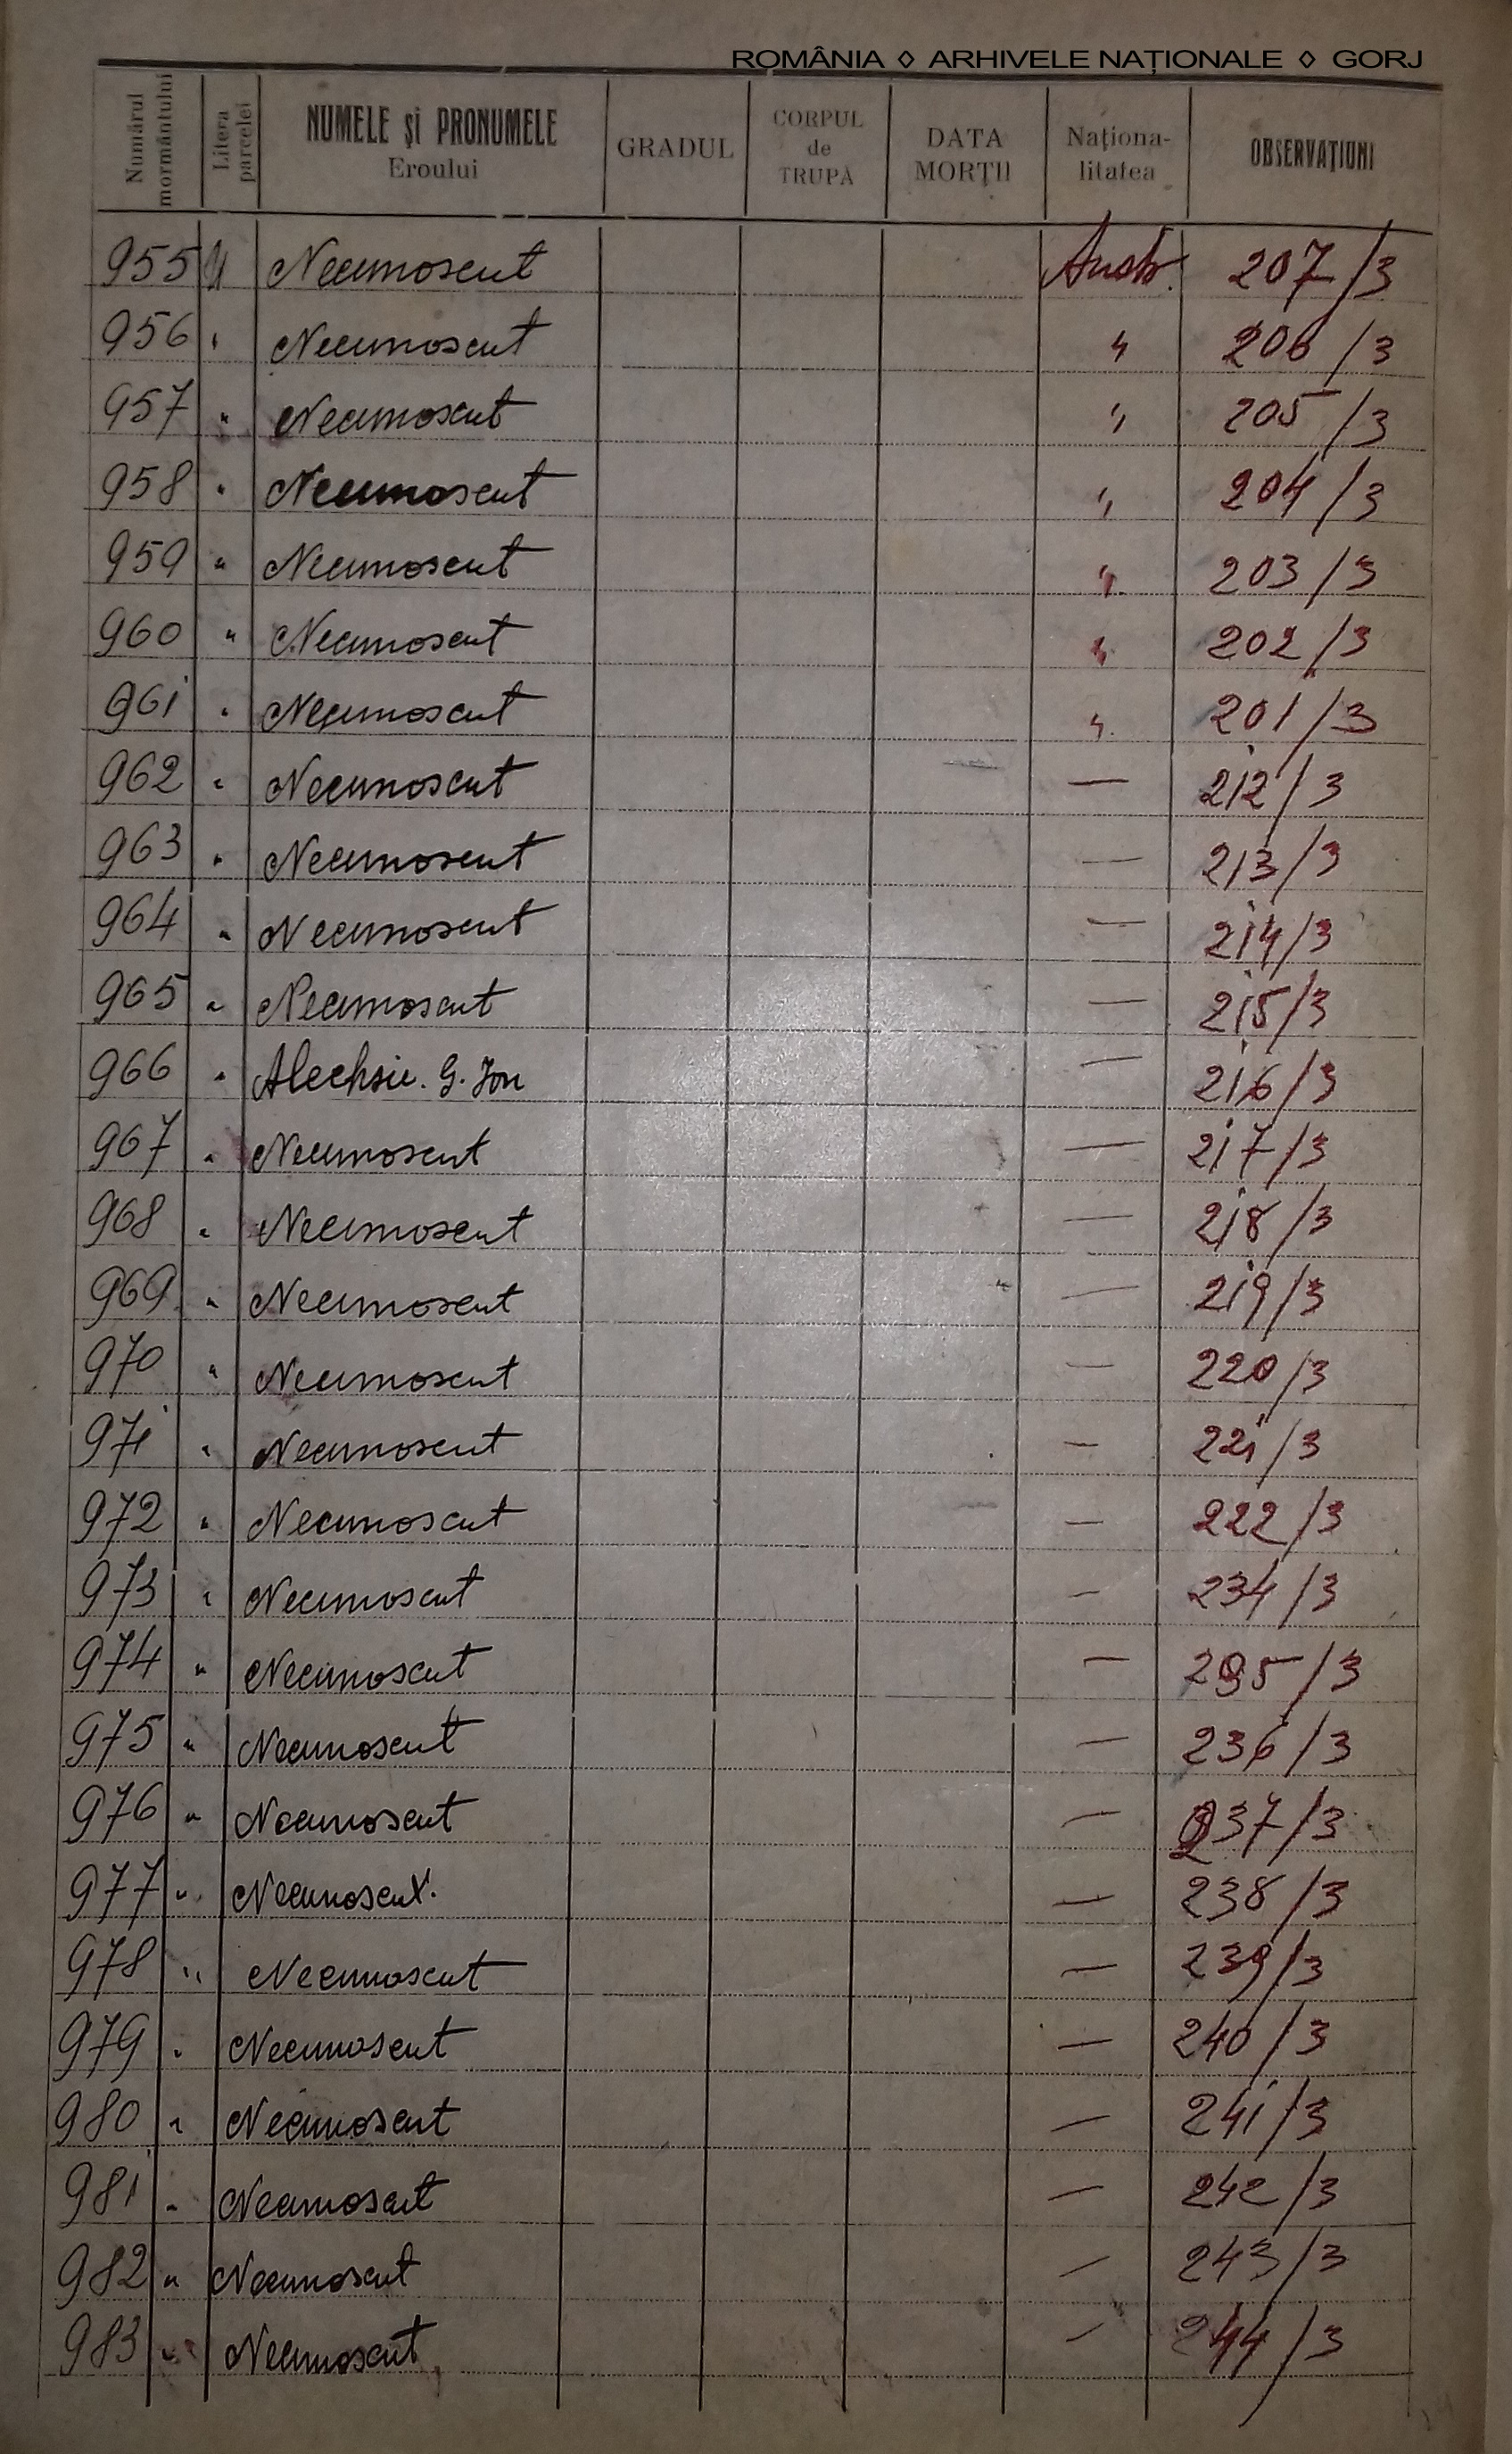 ROMÂNIA ◊ ARHIVELE NAȚIONALE ◊ GORJ
Numărul mormântului Litera parcelei NUMELE și PRONUMELE Eroului GRADUL CORPUL de TRUPĂ DATA MORȚII Naționalitatea OBSERVAȚIUNI
955 Necunoscut Austr. 207/3
956 " Necunoscut " 206/3
957 " Necunoscut " 205/3
958 " Necunoscut " 204/3
959 " Necunoscut " 203/3
960 " Necunoscut " 202/3
961 " Necunoscut " 201/3
962 " Necunoscut — 212/3
963 " Necunoscut — 213/3
964 " Necunoscut — 214/3
965 " Necunoscut — 215/3
966 " Alechsie. G. Ion — 216/3
967 " Necunoscut — 217/3
968 " Necunoscut — 218/3
969 " Necunoscut — 219/3
970 " Necunoscut — 220/3
971 " Necunoscut — 221/3
972 " Necunoscut — 222/3
973 " Necunoscut — 234/3
974 " Necunoscut — 235/3
975 " Necunoscut — 236/3
976 " Necunoscut — 237/3
977 " Necunoscut. — 238/3
978 " Necunoscut — 239/3
979 " Necunoscut — 240/3
980 " Necunoscut — 241/3
981 " Necunoscut — 242/3
982 " Necunoscut — 243/3
983 " Necunoscut — 244/3